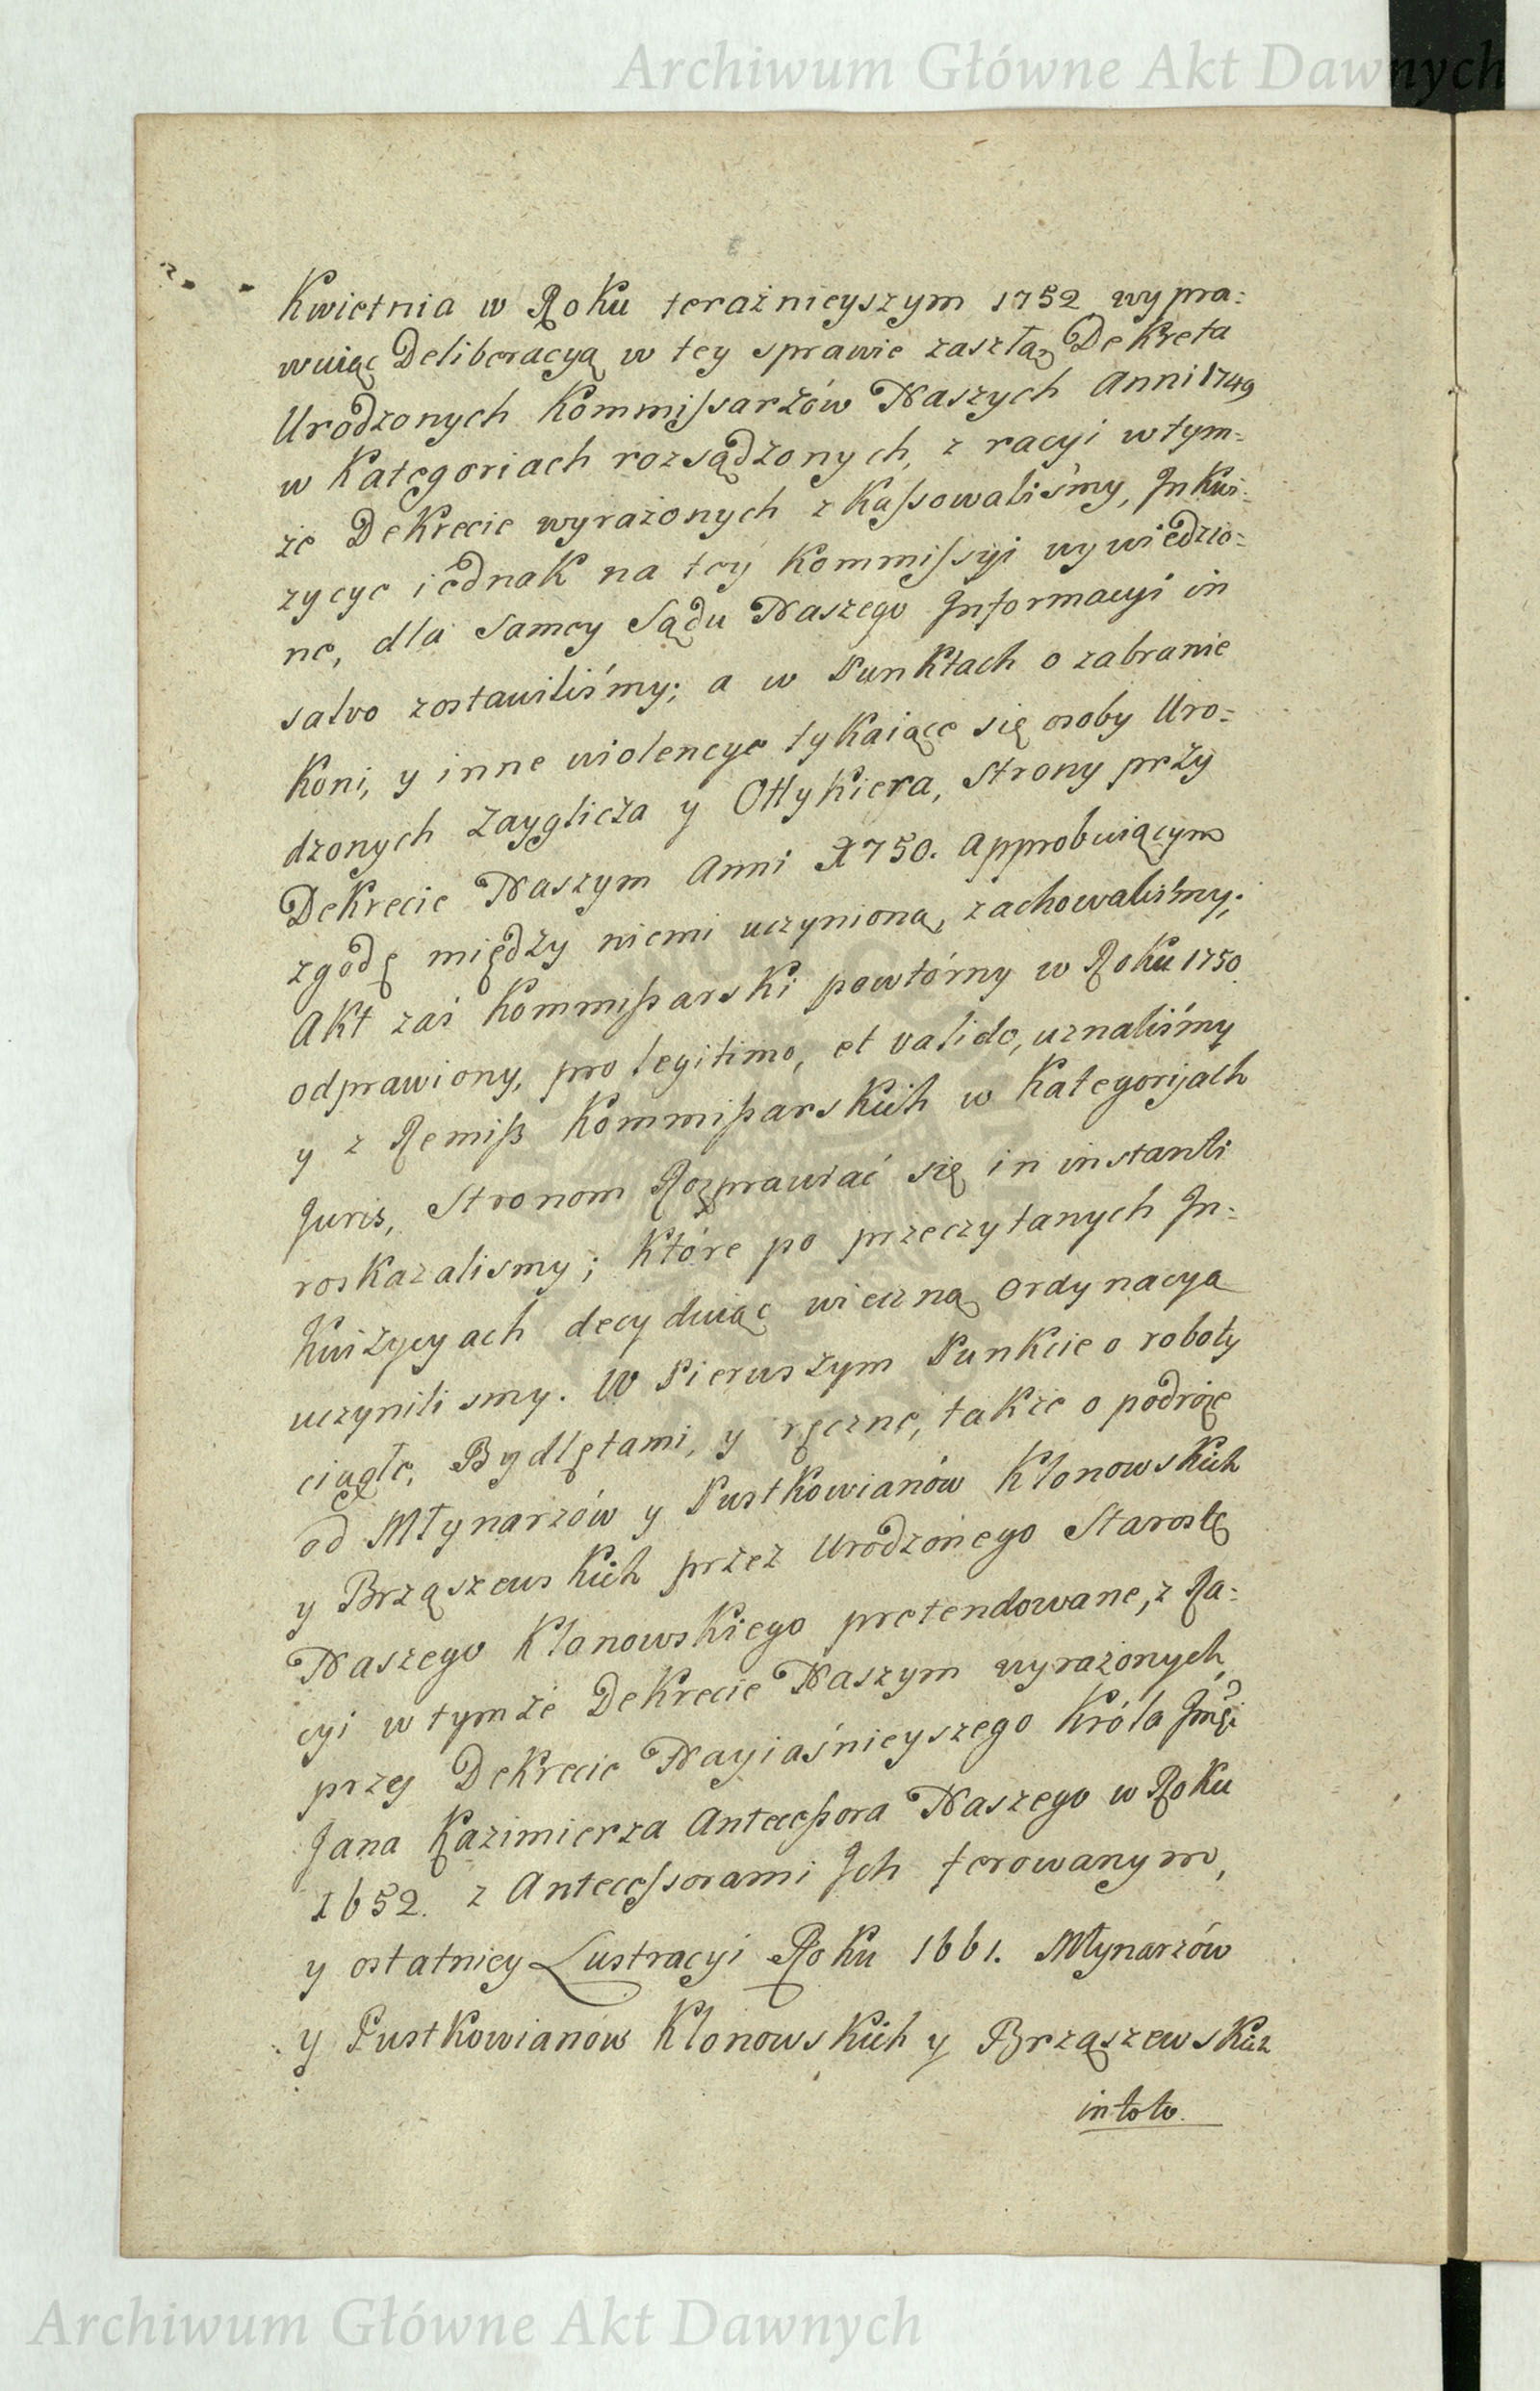 Archiwum Główne Akt Dawnych
Kwietnia w Roku teraźnieyszym 1752 wypra:
wuiąc Deliberacyą w tey sprawie zaszłą, Dekreta
Urodzonych Kommissarzów Naszych Anni 1749
w Kategoriach rozsądzonych, z racyi w tym=
że Dekrecie wyrażonych zkassowaliśmy, Inkwi:
zycye iednak na tey Kommissyi wywiedzio=
ne, dla samey Sądu Naszego Informacyi in
salvo zostawiliśmy; a w Punktach o zabranie
Koni, y inne wiolencye tykaiące się osoby Uro=
dzonych Zayglicza y Ottykiera, Strony przy
Dekrecie Naszym Anni 1750. approbuiącym
zgodę między niemi uczynioną, zachowaliśmy;
Akt zaś Kommissarski powtórny w Roku 1750
odprawiony, pro legitimo, et valido, uznaliśmy
y z Remiss Kommissarskich w Kategoryach
Juris, Stronom Rozprawiać się in instanti
roskazalismy; które po przeczytanych In=
kwizycyach decyduiąc wieczną ordynacya
uczynilismy. W Pierwszym Punkcie o roboty
ciągłe, Bydlętami, y ręczne, także o podróże
od Młynarzów y Pustkowianów Klonowskich
y Brząszewskich przez Urodzonego Starostę
Naszego Klonowskiego pretendowane, z Ra=
cyi w tymże Dekrecie Naszym wyrażonych,
przy Dekrecie Nayiaśnieyszego Króla Jmści
Jana Kazimierza Antecessora Naszego w Roku
1652. z Antecessorami Ich ferowanym,
y ostatniey Lustracyi Roku 1661. Młynarzów
y Pustkowianów Klonowskich y Brząszewskich
in toto.
Archiwum Główne Akt Dawnych